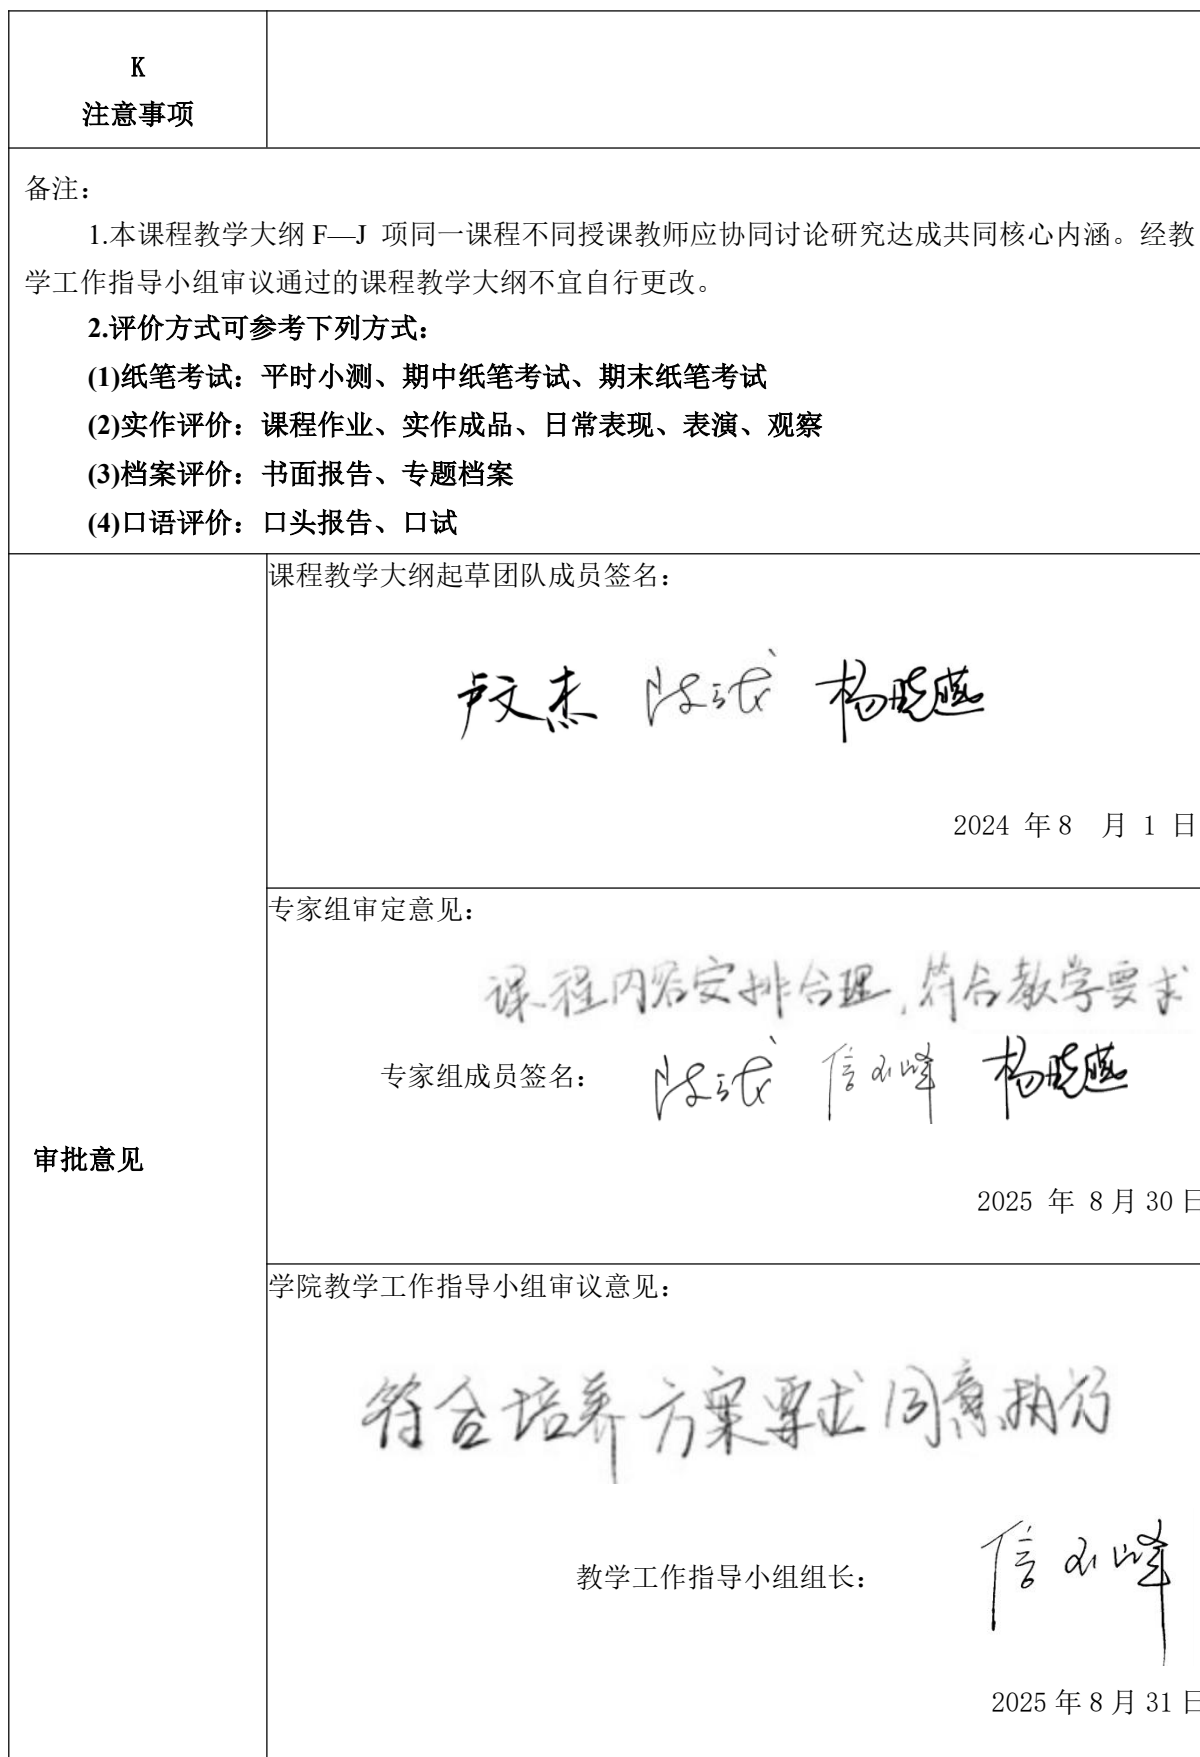 K
注意事项
备注：
1.本课程教学大纲 F—J 项同一课程不同授课教师应协同讨论研究达成共同核心内涵。经教
学工作指导小组审议通过的课程教学大纲不宜自行更改。
2.评价方式可参考下列方式：
(1)纸笔考试：平时小测、期中纸笔考试、期末纸笔考试
(2)实作评价：课程作业、实作成品、日常表现、表演、观察
(3)档案评价：书面报告、专题档案
(4)口语评价：口头报告、口试
审批意见
课程教学大纲起草团队成员签名：
卢文杰 杨晓燕
2024 年 8 月 1 日
专家组审定意见：
课程内容安排合理,符合教学要求
专家组成员签名： 杨晓燕
2025 年 8 月 30 日
学院教学工作指导小组审议意见：
符合培养方案要求同意执行
教学工作指导小组组长：
2025 年 8 月 31 日